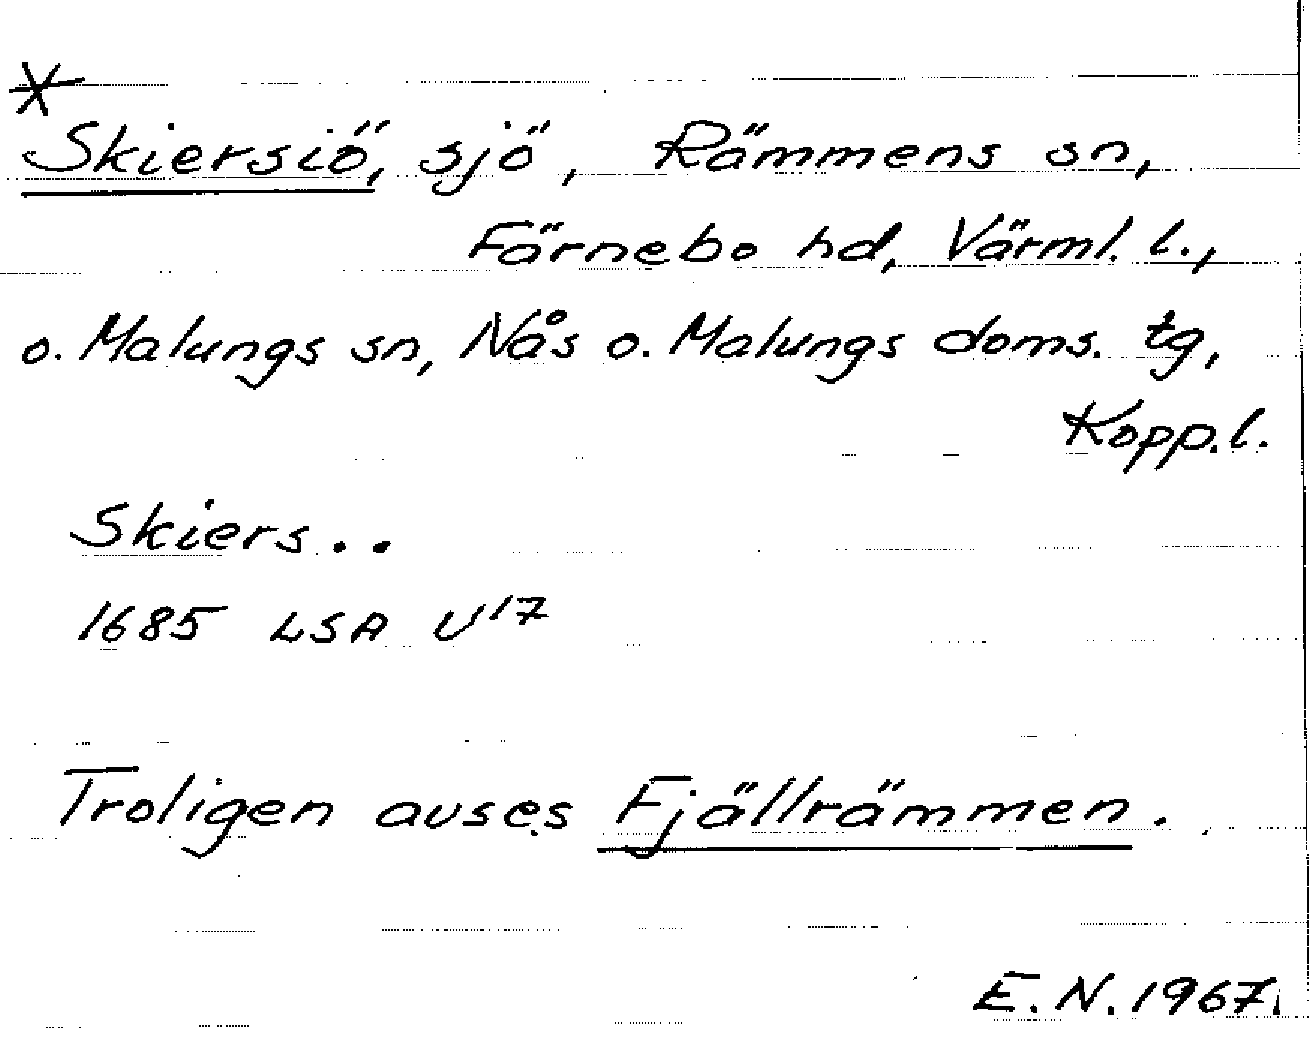 *
Skiersiö, sjö, Rämmens sn,
Färnebo hd, Värml. l.,
o. Malungs sn, Nås o. Malungs doms. tg,
Kopp. l.
Skiers..
1685 LSA U17
Troligen avses Fjällrämmen.
E. N. 1967.